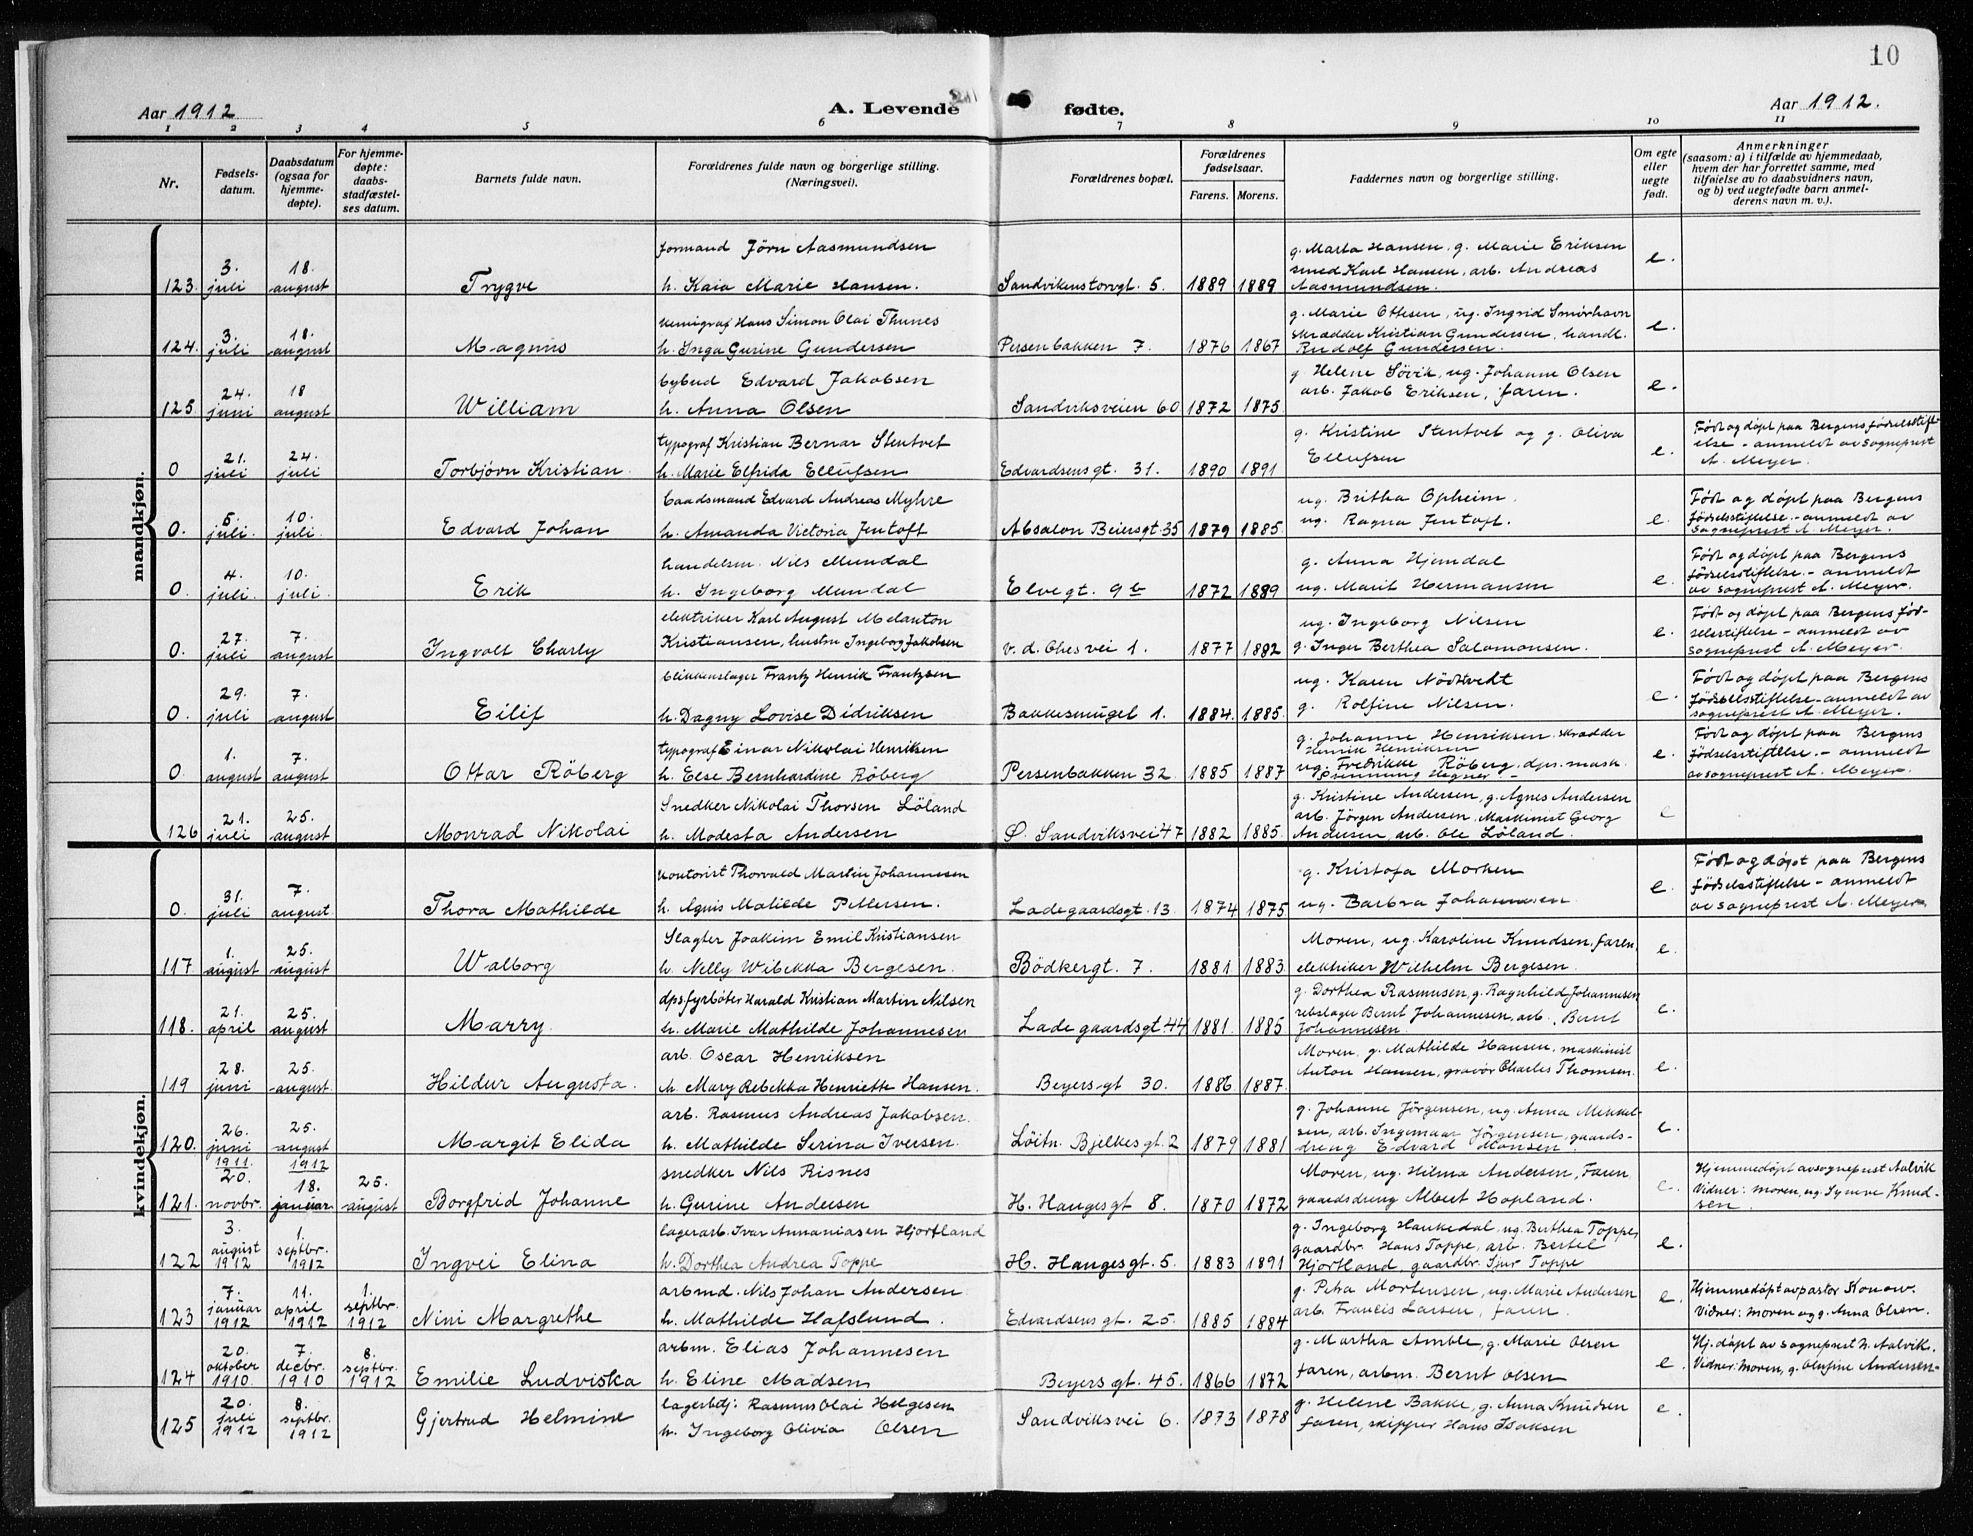 10
Aar 1912
A. Levende
fødte.
Aar 1912.
1 2 3 4 5 6 7 8 9 10 11
Nr.
Fødsels-
datum.
Daabsdatum
(ogsaa for
hjemme-
døpte).
For hjemme-
døpte:
daabs-
stadfæstel-
ses datum.
Barnets fulde navn.
Forældrenes fulde navn og borgerlige stilling.
(Næringsvei).
Forældrenes bopæl.
Forældrenes
fødselsaar.
Farens. Morens.
Faddernes navn og borgerlige stilling.
Om egte
eller
uegte
født.
Anmerkninger
(saasom: a) i tilfælde av hjemmedaab,
hvem der har forrettet samme, med
tilføielse av to daabsvidners navn,
og b) ved uegtefødte barn anmel-
derens navn m. v.).
mandkjøn.
123. 3. juli 18. august Trygve
formand Jörn Aasmundsen
h. Kaia Marie Hansen.
Sandvikenstorvgt. 5. 1889 1889
g. Marta Hansen, g. Marie Eriksen
smed Karl Hansen, arb. Andreas
Aasmundsen.
e.
124. 3. juli 18. august Magnus
kemigraf Hans Simon Olai Thunes
h. Inga Gurine Gundersen
Persenbakken 7. 1876 1867
g. Marie Ottesen, ug. Ingrid Smörhavn
skrædder Kristian Gundersen, handl.
Rudolf Gundersen.
e.
125. 24. juni 18 august William
bybud Edvard Jakobsen
h. Anna Olsen
Sandviksveien 60 1872 1875
g. Helene Sövik, ug. Johanne Olsen
arb. Jakob Eriksen, faren.
e.
0 21. juli 24. juli Torbjörn Kristian.
typograf Kristian Bernar Stentvet
h. Marie Elfrida Ellufsen
Edvardsensgt. 31. 1890 1891
g. Kristine Stentvet og g. Oliva
Ellufsen
e.
Födt og döpt paa Bergens födselsstift-
else - anmeldt av sogneprest
A. Meyer.
0. 5. juli. 10. juli. Edvard Johan
baadsmand Edvard Andreas Myhre
h. Amanda Victoria Jentoft
Absalon Beiersgt. 35 1879 1885.
ug. Britha Opheim.
ug. Ragna Jentoft.
e.
Födt og döpt paa Bergens
födselsstiftelse - anmeldt av
sogneprest A. Meyer.
0. 4. juli. 10. juli. Erik
handelsm. Nils Mundal
h. Ingeborg Mundal
Elvegt. 9b 1872 1889
g. Anna Hjemdal
ug. Marit Hermansen
e.
Födt og döpt paa Bergens
födselsstiftelse. - anmeldt
av sogneprest A. Meyer.
0. 27. juli 7. august Ingvalt Charly
elektriker Karl August Melankton
Kristiansen, hustru Ingeborg Jakobsen
v. d. Ohes vei 1. 1877 1882
ug. Ingeborg Nilsen
g. Inger Berthea Salomonsen.
e.
Födt og döpt paa Bergens föd-
selsstiftelse - anmeldt av
sogneprest A. Meyer.
0. 29. juli 7. august Eilif
blikkenslager Frantz Henrik Frantzsen
h. Dagny Lovise Didriksen
Bakkesmuget 1. 1884. 1885.
ug. Karen Nödtvedt
g. Rolfine Nilsen.
e.
Födt og döpt paa Bergens
födselsstiftelse - anmeldt av
sogneprest A. Meyer.
0. 1. august 7. august Ottar Röberg
typograf Einar Nikolai Henriksen
h. Else Bernhardine Röberg
Persenbakken 32 1885 1887
g. Johanne Henriksen, skrædder
Henrik Henriksen
ug. Fredrikke Röberg, dps. mask.
Hegner.
e.
Födt og döpt paa Bergens
födselsstiftelse. - anmeldt
av sogneprest A. Meyer.
126 21. juli 25. august Monrad Nikolai
Snedker Nikolai Thorsen Löland
h. Modesta Andersen
Ø. Sandviksvei 47 1882 1885.
g. Kristine Andersen, g. Agnes Andersen
arb. Jörgen Andersen, Maskinist Georg
Andersen, arb. Ole Löland.
e
kvindekjøn.
0. 31. juli 7. august. Thora Mathilde
kontorist Thorvald Martin Johannesen
h. Agnes Matilde Pettersen.
Ladegaardsgt. 13. 1874 1875
g. Kristofa Morken
ug. Barbra Johannesen
e.
Födt og döpt paa Bergens
födselsstiftelse - anmeldt
av sogneprest A. Meyer.
117 1. august 25. august Walborg
Slagter Joakim Emil Kristiansen
h. Nelly Wibekka Bergesen.
Bödkergt. 7. 1881 1883.
Moren, ug. Karoline Knudsen, faren,
elektriker Wilhelm Bergesen.
e.
118. 21. april 25. august Marry.
dps. fyrböter Harald Kristian Martin Nilsen
h. Marie Mathilde Johannesen
Ladegaardsgt. 44 1881. 1885
g. Dorthea Rasmusen, g. Ragnhild Johannesen
rebslager Bernt Johannesen, arb. Bernt
Johannesen.
e.
119 28. juni 25. august Hildur Augusta.
arb. Oscar Henriksen
h. Mary Rebekka Henriette Hansen.
Beyersgt 30. 1886 1887.
Moren, g. Mathilde Hansen, maskinist
Anton Hansen, gravör Charles Thomsen.
e.
120. 26. juni 1911. 25. august 1912 Margit Elida
arb. Rasmus Andreas Jakobsen.
h. Mathilde Serina Iversen.
Löitn. Bjelkesgt. 2 1879 1881
g. Johanne Jörgensen, ug. Anna Mikkel-
sen, arb. Ingemaar Jörgensen, gaards-
dreng Edvard Monsen.
e.
121. 20. novbr. 18. januar. 25. august Borgfrid Johanne
snedker Nils Risnes
h. Gurine Andersen
H. Haugesgt 8. 1870 1872
Moren, ug. Hilma Andersen, Faren
gaardsdreng Albert Hopland.
e.
Hjemmedöpt av sogneprest Aalvik
Vidner: moren, ug. Synnve Knud-
sen.
122 3. august 1912 1. septbr. 1912 Ingvei Elina
lagerarb. Ivar Annaniassen Hjortland
h. Dorthea Andrea Toppe
H. Haugesgt. 5. 1883 1891
g. Ingeborg Haukedal, ug. Berthea Toppe,
gaardbr. Hans Toppe, arb. Bertel
Hjortland, gaardbr. Sjur Toppe
e.
123 7. januar 1912 11. april 1912 1. septbr. 1912 Nini Margrethe
arbmd. Nils Johan Andersen
h. Mathilde Hafslund.
Edvardsensgt. 25. 1885 1884
g. Petra Mortensen, ug. Marie Andersen
arb. Francis Larsen, faren
e.
Hjemmedöpt av pastor Konow.
Vidner: moren og g. Anna Olsen.
124 20. oktober 1910. 7. decbr. 1910 8. septbr. 1912 Emilie Ludviska
arbm. Elias Johannesen
h. Eline Madsen
Beyersgt. 45. 1866 1872
g. Martha Amble, g. Marie Olsen
faren, arbm. Bernt Olsen
e.
Hj. döpt av sogneprest N. Aalvik.
Vidner: moren, g. Olufine Andersen-
125 20. juli 1912 8. septbr. 1912 Gjertrud Helmine
lagerbetj. Rasmus Olai Helgesen
h. Ingeborg Olivia Olsen
Sandviksvei 6. 1873 1878
g. Helene Bakke, g. Anna Knudsen
faren, skipper Hans Isaksen
e.